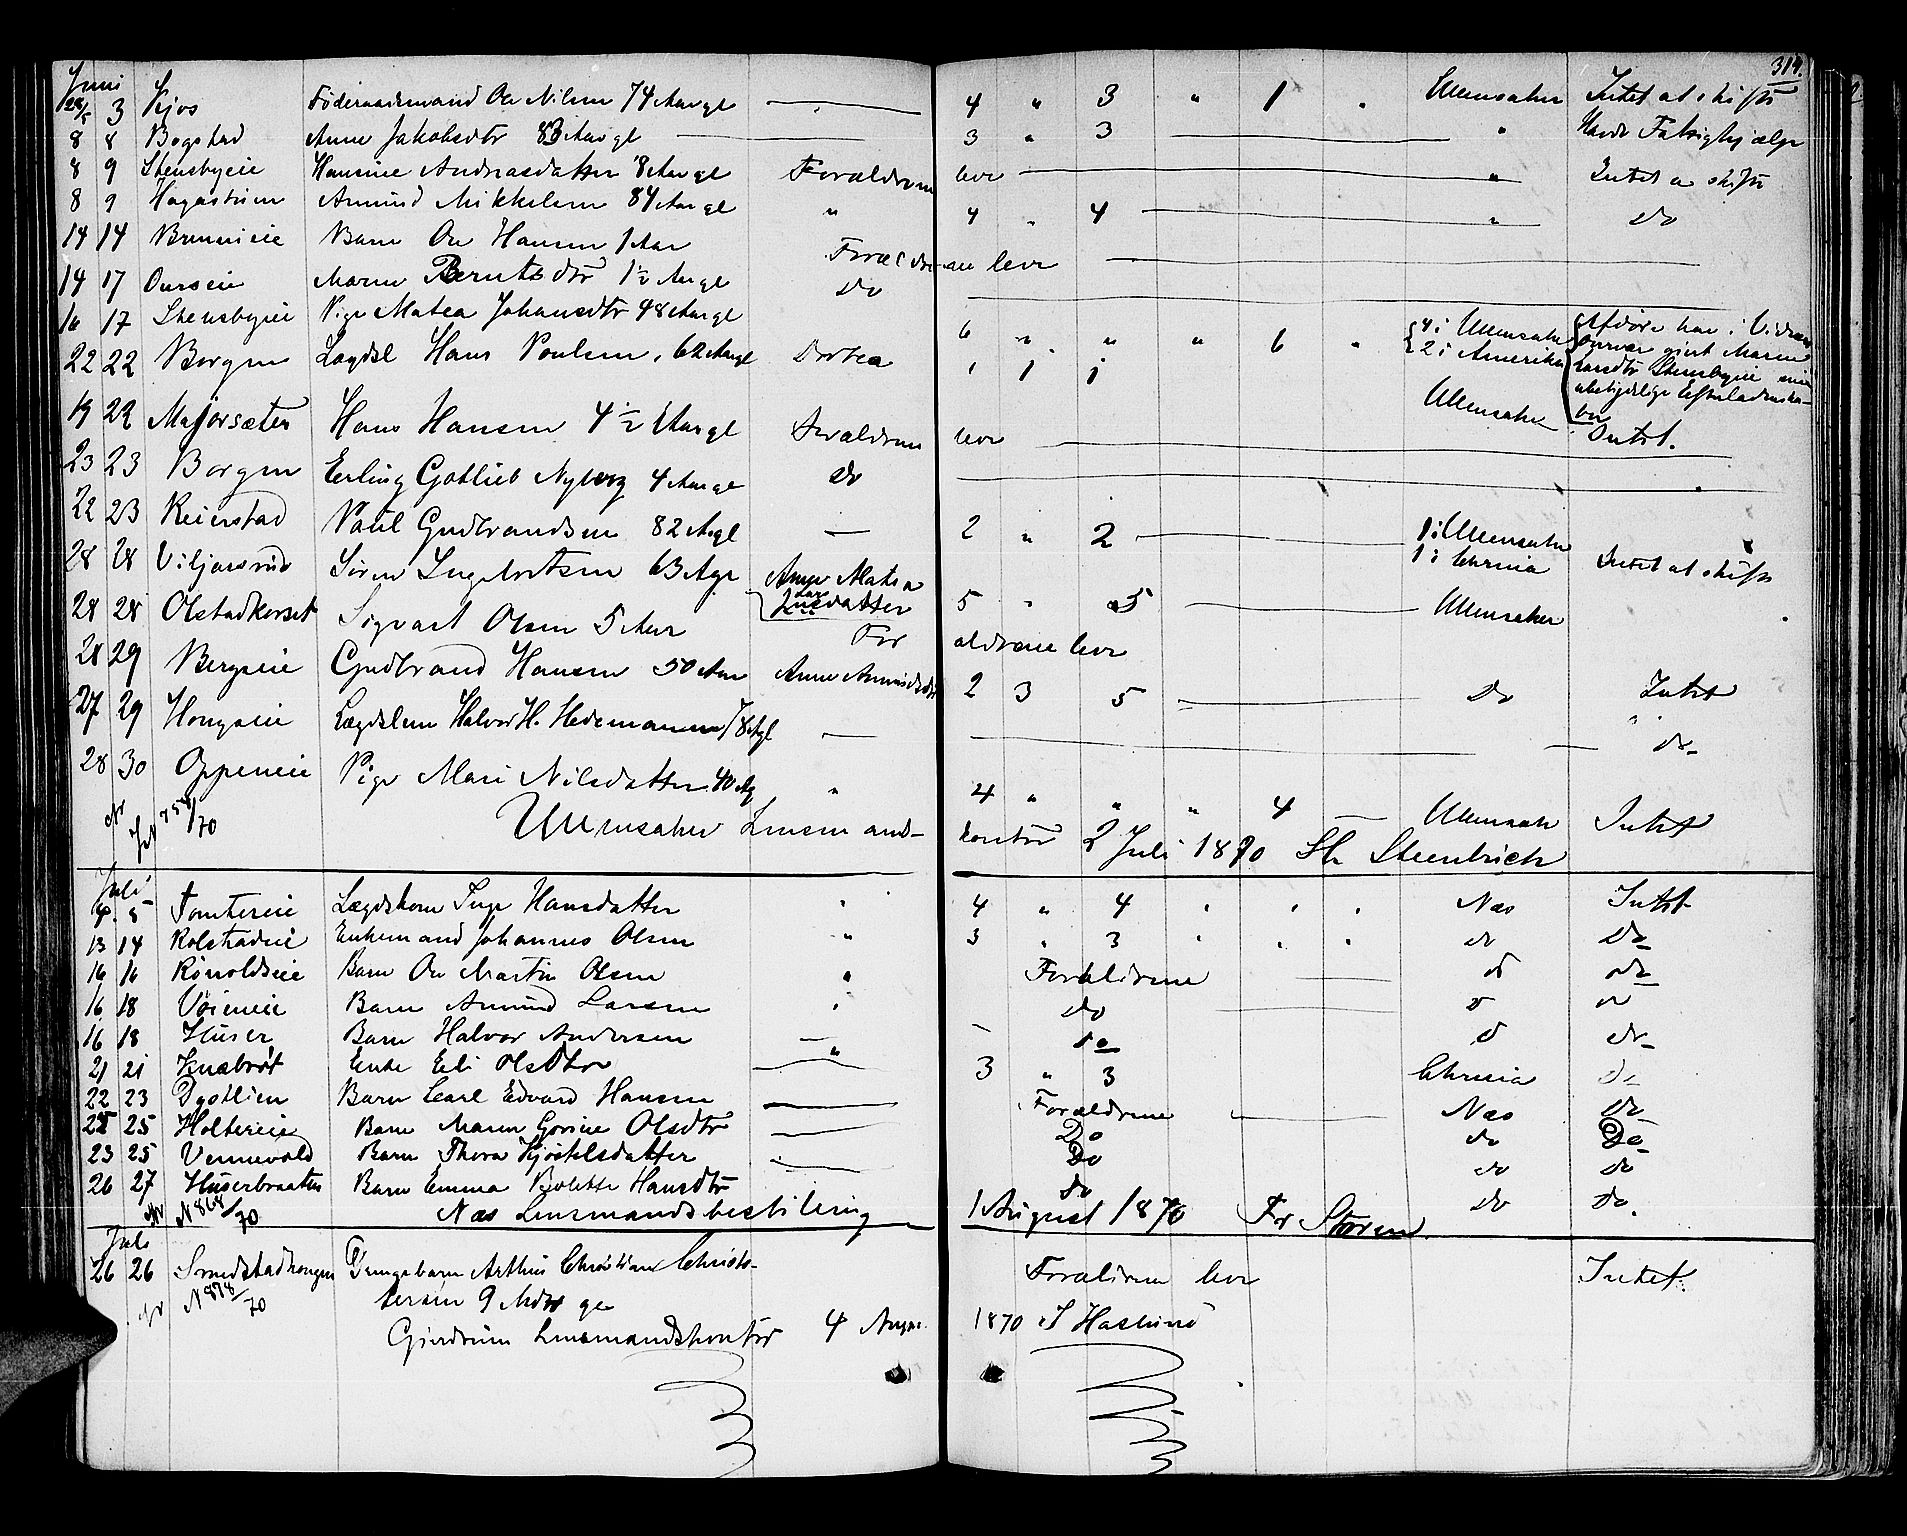 314.
Juni
28/5 3 Kjos Föderaadsmand Ole Nilsen 74 Aar gl — 4 " 3 " 1 . Ullensaker Intet at skifte
8 8 Bogstad Anne Jakobsdtr 83 Aar gl — 3 " 3 — " Havde Fattighjælp
8 9 Stensbyeie Hansine Andreasdatter 8 Aar gl Forældrene leve — " Intet a skifte
8 9 Hagastuen Amund Mikkelsen 84 Aar gl " 4 " 4 — " do
14 14 Brunneie Barn Ole Hansen 1 Aar Forældrene leve —
14 17 Ourseie Maren Berntsdtr 1½ Aar gl do —
16 17 Stensbyeie Pige Matea Johansdtr 48 Aar gl 6 " " " 6 " 4 i Ullensaker 2 i Amerika
22 22 Borgen Lægdsl Hans Poulsen, 62 Aar gl Dortea 1 1 1 Ullensaker
19 22 Majorsæter Hans Hansen 4½ Aar gl Forældrene leve — Intet.
23 23 Borgen Erling Gotlieb Nyberg 4 Aar gl do —
22 23 Reierstad Paul Gudbrandsen 82 A. gl — 2 " 2 — 1 i Ullensaker 1 i Chrnia Intet at skifte
28 28 Viljarsrud Søren Ingebretsen 63 Agl Anne Matea Larsdatter 5 " 5 — Ullensaker
28 28 Olstadkorset Sigvart Olsen 5 Aar Forældrene leve
28 29 Bergseie Gudbrand Hansen 50 Aar Anne Amundsdtr 2 3 5 — do Intet
27 29 Hongseie Lægdslem Halvor H. Hedemannen 78 Agl — do
28 30 Oppeneie Pige Mari Nilsdatter 40 Ag " 4 " " " 4 — Ullensak Intet
Nr 754/70 Ullensaker Lensmandskontor 2 Juli 1870 Steenbuch
Juli
4. 5 Tomtereie Lægdskone Inge Hansdatter " 4 " 4 " " " Næs Intet
13 14 Rolstadeie Enkemand Johannes Olsen " 3 " 3 " " " do do
16 16 Rönoldseie Barn Ole Martin Olsen " Forældrene — do do
16 18 Vöieneie Barn Amund Larsen " do — do do
16 18 Huser Barn Halvor Andersen — do do do
21 21 Knabrot Enke Eli Olsdtr " 3 " 3 Chrnia do
22 23 Dystlien Barn Carl Edvard Hansen — Forældrene — Næs do
24 25 Holtereie Barn Maren Gorine Olsdtr — Do do Do
23 25 Vennevold Barn Thora Kjöstelsdatter — Do do do
26 27 Huserbraaten Barn Emma Bolette Hansdtr do do do.
Nr N 868/70 Næs Lensmandsbestilling 1 August 1870 Fr Storm
Juli
26 26 Smedstadhougen Drengebarn Arthur Christian Christo-
fersen 9 Mdr gl Forældrene leve Intet.
N 878/70
Gjerdrum Lensmandskontor 4 Aug. 1870